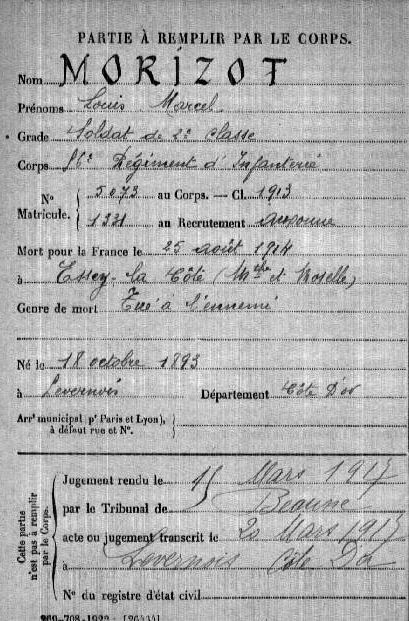 PARTIE À REMPLIR PAR LE CORPS.
Nom MORIZOT
Prénoms Louis Marcel
Grade Soldat de 2e classe
Corps Régiment d'Infanterie
No Matricule. 5073 au Corps. — Cl. 1913
1331 au Recrutement Auxonne
Mort pour la France le 25 août 1914
à Essey-la Côte (Mthe et Moselle)
Genre de mort Tué à l'ennemi
Né le 18 octobre 1893
à Levernois Département Côte d'Or
Arrt municipal (pr Paris et Lyon),
à défaut rue et No.
Cette partie n'est pas à remplir par le Corps.
Jugement rendu le 15 Mars 1917
par le Tribunal de Beaune
acte ou jugement transcrit le 20 Mars 1917
à Levernois Côte D'Or
No du registre d'état civil